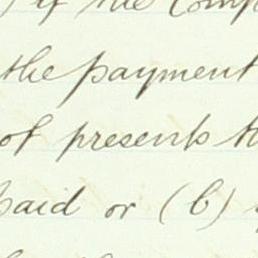 if the Comp
the payment
of presents th
paid or (b)